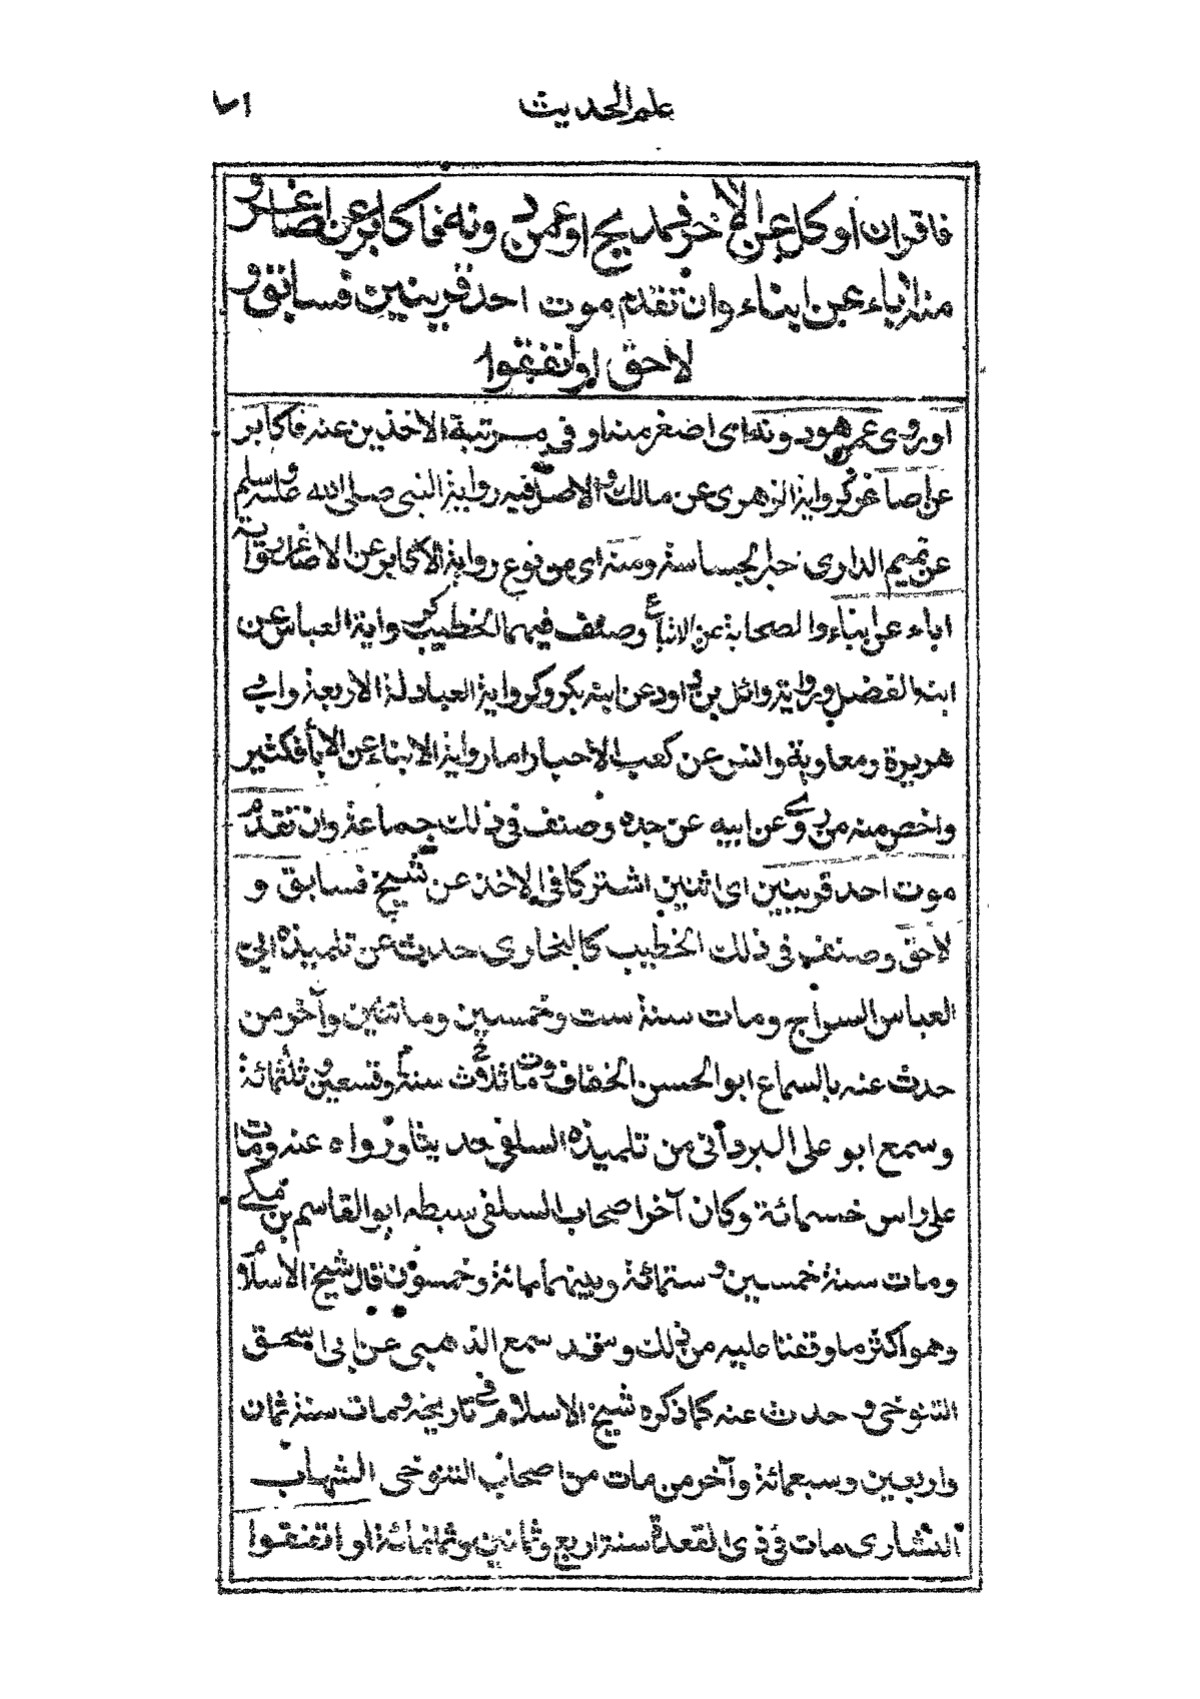 علم الحديث ١٧
فاقران او كل عن الاخر فمدبج او عمن دونه فاكابر عن اصاغر و
منه اباء عن ابناء وان تقدم موت احد قرينين فسابق و
لاحق او اتفقوا
او روى عمن هو دونه اى اصغر منه او فى مرتبة الاخذين عنه فاكابر
عن اصاغر كرواية الزهرى عن مالك والاصل فيه رواية النبى صلى الله عليه وسلم
عن تميم الدارى خبر الجساسة ومنه اى من نوع رواية الاكابر عن الاصاغر رواية
اباء عن ابناء والصحابة عن الاتباع وصنف فيهما الخطيب كرواية العباس عن
ابنه الفضل ورواية وائل بن داود عن ابنه بكر وكرواية العبادلة الاربعة وابى
هريرة ومعاوية وانس عن كعب الاحبار اما رواية الابناء عن الاباء فكثير
واخص منه من روى عن ابيه عن جده وصنف فى ذلك جماعة وان تقدم
موت احد قرينين اى اثنين اشتركا فى الاخذ عن شيخ فسابق و
لاحق وصنف فى ذلك الخطيب كالبخارى حديث عن تلميذه ابى
العباس السراج ومات سنة ست وخمسين ومائتين وآخر من
حدث عنه بالسماع ابو الحسن الخفاف ومات سنة ثلاث وتسعين وثلثمائة
وسمع ابو على البردانى من تلميذه السلفى حديثا ورواه عنه ومات
على راس خمسمائة وكان آخر اصحاب السلفى سبطه ابو القاسم بن مكى
ومات سنة خمسين وستمائة وبينهما مائة وخمسون قال شيخ الاسلام
وهو اكثر ما وقفنا عليه من ذلك وقد سمع الذهبى عن ابى اسحق
التنوخى وحدث عنه كما ذكره شيخ الاسلام فى تاريخه ومات سنة ثمان
واربعين وسبعمائة وآخر من مات من اصحاب التنوخى الشهاب
الشارى مات فى ذى القعدة سنة اربع وثمانين وثمانمائة او اتفقوا